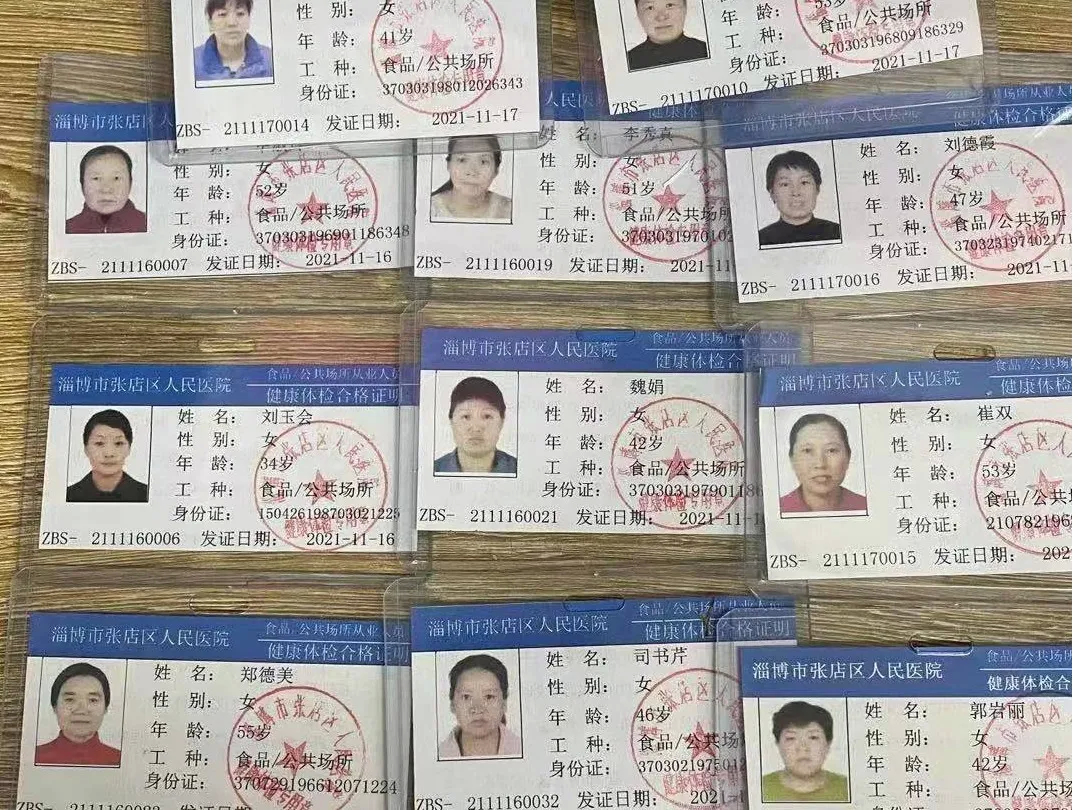 性 别： 女
年 龄： 41岁
工 种： 食品/公共场所
身份证： 370303198012026343
ZBS- 2111170014 发证日期： 2021-11-17
年 龄： 53岁
工 种： 食品/公共场所
身份证： 370303196809186329
2111170010 发证日期： 2021-11-17
淄博市张店区人民
性 别： 女
年 龄： 52岁
工 种： 食品/公共场所
身份证： 370303196901186348
ZBS- 2111160007 发证日期： 2021-11-16
人民医
姓 名： 李秀真
性 别： 女
年 龄： 51岁
工 种： 食品/公共场所
身份证： 3703031970102
ZBS- 2111160019 发证日期： 2021-11
淄博市张店区人民医院
食品/公共场所从业人员
健康体检合格证明
姓 名： 刘德霞
性 别： 女
年 龄： 47岁
工 种： 食品/公共场所
身份证： 37032319740217
ZBS- 2111170016 发证日期： 2021-11-
淄博市张店区人民医院
食品/公共场所从业人员
健康体检合格证明
姓 名： 刘玉会
性 别： 女
年 龄： 34岁
工 种： 食品/公共场所
身份证： 150426198703021225
ZBS- 2111160006 发证日期： 2021-11-16
淄博市张店区人民医院
食品/公共场所从业人员
健康体检合格证明
姓 名： 魏娟
性 别： 女
年 龄： 42岁
工 种： 食品/公共场所
身份证： 3703031979011
ZBS- 2111160021 发证日期： 2021-11-1
淄博市张店区人民医院
食品/公共场所从
健康体检合
姓 名： 崔双
性 别： 女
年 龄： 53岁
工 种： 食品/公共场
身份证： 210782196
ZBS- 2111170015 发证日期： 202
淄博市张店区人民医院
食品/公共场所从业人员
健康体检合格证明
姓 名： 郑德美
性 别： 女
年 龄： 55岁
工 种： 食品/公共场所
身份证： 370729196612071224
淄博市张店区人民医院
食品/公共场所从业人员
健康体检合格证明
姓 名： 司书芹
性 别： 女
年 龄： 46岁
工 种： 食品/公共场
身份证： 370302197501
ZBS- 2111160032 发证日期： 202
淄博市张店区人民医院
食品/公共场所从
健康体检合
姓 名： 郭岩丽
性 别： 女
年 龄： 42岁
工 种： 食品/公共场